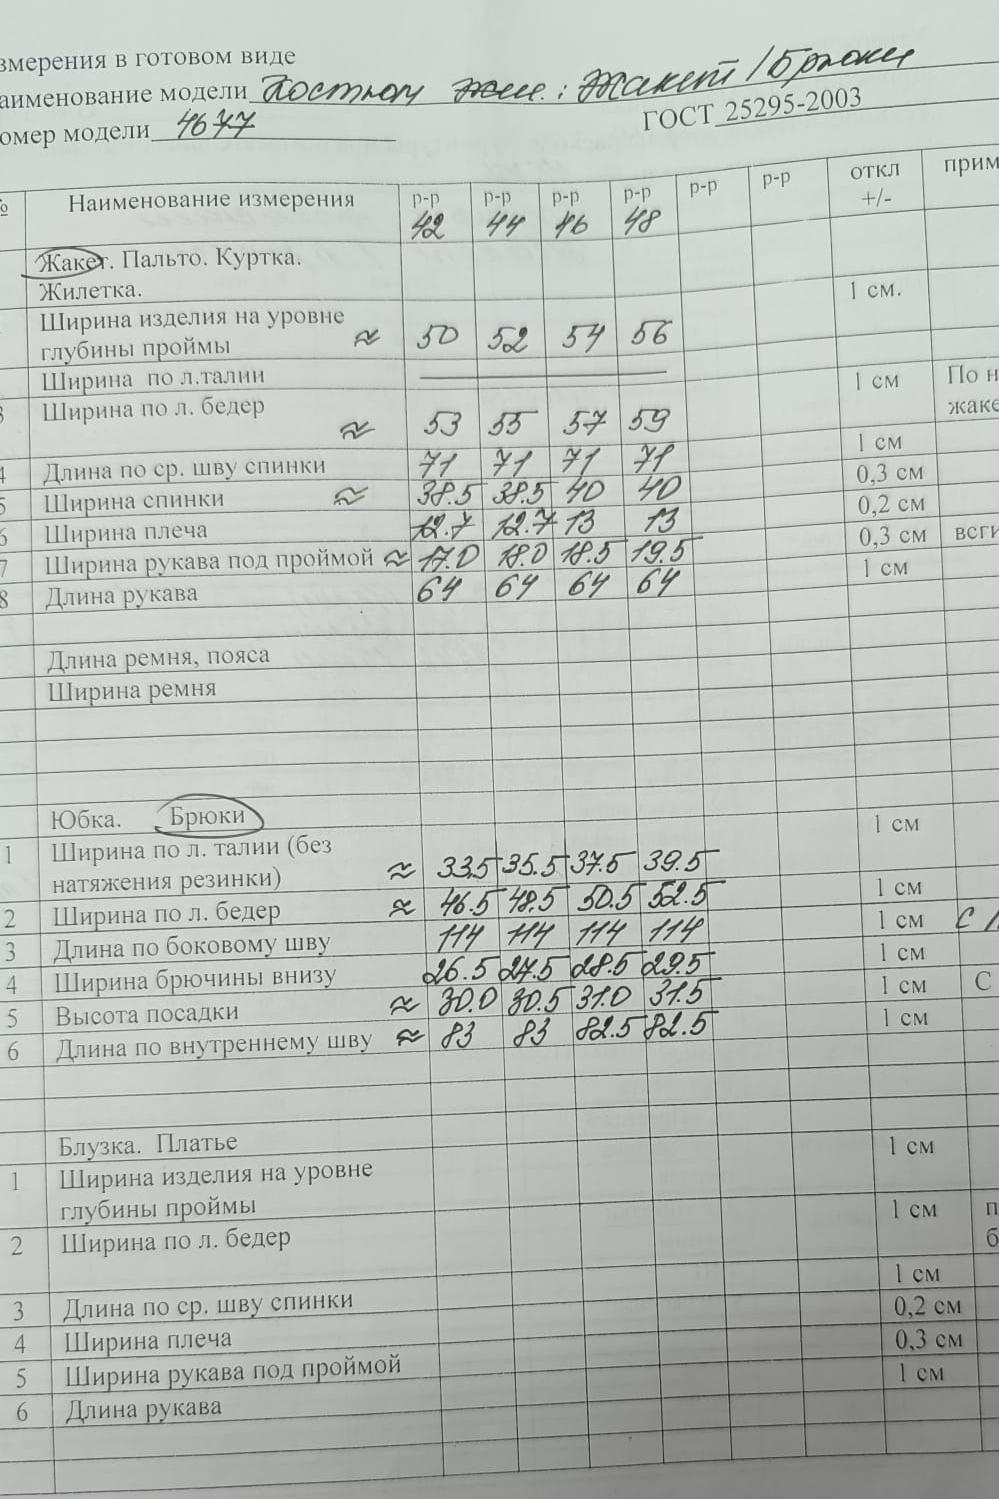 змерения в готовом виде
аименование модели Костюм жен.: Жакет / Брюки
омер модели 4677 ГОСТ 25295-2003
№ Наименование измерения р-р 42 р-р 44 р-р 46 р-р 48 р-р р-р откл +/- прим
Жакет. Пальто. Куртка.
Жилетка. 1 см.
Ширина изделия на уровне
глубины проймы ≈ 50 52 54 56
Ширина по л.талии 1 см По н
3 Ширина по л. бедер ≈ 53 55 57 59 жаке
1 см
4 Длина по ср. шву спинки 71 71 71 71 0,3 см
5 Ширина спинки ≈ 38.5 38.5 40 40 0,2 см
6 Ширина плеча 12.7 12.7 13 13 0,3 см всги
7 Ширина рукава под проймой ≈ 17.0 18.0 18.5 19.5 1 см
8 Длина рукава 64 64 64 64
Длина ремня, пояса
Ширина ремня
Юбка. Брюки 1 см
1 Ширина по л. талии (без
натяжения резинки) ≈ 33,5 35.5 37.5 39.5 1 см
2 Ширина по л. бедер ≈ 46.5 48,5 50.5 52.5 1 см С
3 Длина по боковому шву 114 114 114 114 1 см
4 Ширина брючины внизу 26.5 27.5 28.5 29.5 1 см С
5 Высота посадки ≈ 30.0 30.5 31.0 31.5 1 см
6 Длина по внутреннему шву ≈ 83 83 82.5 82.5
Блузка. Платье 1 см
1 Ширина изделия на уровне
глубины проймы 1 см п
2 Ширина по л. бедер б
1 см
3 Длина по ср. шву спинки 0,2 см
4 Ширина плеча 0,3 см
5 Ширина рукава под проймой 1 см
6 Длина рукава